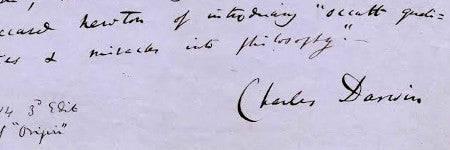 ccused Newton of introducing "occult quali=
es & miracles into philosophy".—
Charles Darwin
14 3d Edit
f "Origin"